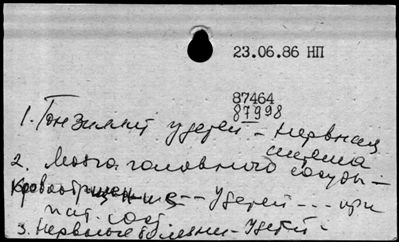 23.06.86 НП
87464
87998
1. у детей - нервная
система
2. Мозга головного сосуды -
Кровообращение -- у детей --- при
пат. сост.
3. Нервные болезни - у детей.